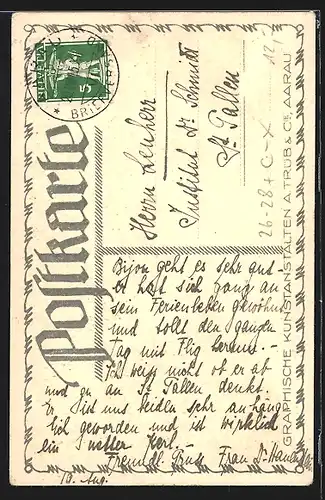 HELVETIA
5
BRIENZERS
Postkarte
Herrn Lenherr
Institut Dr Schmidt
St. Gallen
26-28 + G-X
12.
Bijou geht es sehr gut -
er hat sich ganz an
sein Ferienleben gewöhnt
und tollt den ganzen
Tag mit Flig herum. -
Ich weiss nicht ob er ab
und zu an St. Gallen denkt.
Er ist uns beiden sehr anhäng-
lich geworden und ist wirklich
ein netter Kerl. -
Freundl. Gruss Frau Dr
10. Aug.
GRAPHISCHE KUNSTANSTALTEN A. TRÜB & CIE AARAU